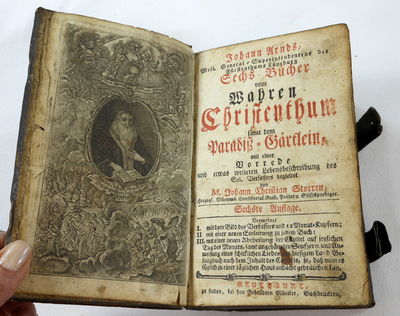 Johann Arnds,
Weil. General-Superintendentens des
Fürstenthums Lüneburg
Sechs Bücher
vom
Wahren
Christenthum
samt dem
Paradiß-Gärtlein,
mit einer
Vorrede
und etwas weitern Lebensbeschreibung des
Sel. Verfassers begleitet
von
M. Johann Christian Storren,
Herzogl. Consistorial-Rath,
Sechste Auflage.
I. mit dem Bild des Verfassers und Monat-Kupfern;
II. mit einer neuen Einleitung zu jedem Buch;
III. mit einer neuen Abtheilung der Capitel auf jeglichen
Tag des Monats, samt angehängten Seufzern und
eines schicklichen Lieder
dem Inhalt des Capitels, so, daß man es
füglich zu einer täglichen Hausandacht gebrauchen kan.
STUTTGART,
zu finden, bei den Gebrüdern Mäntler, Buchdruckern,